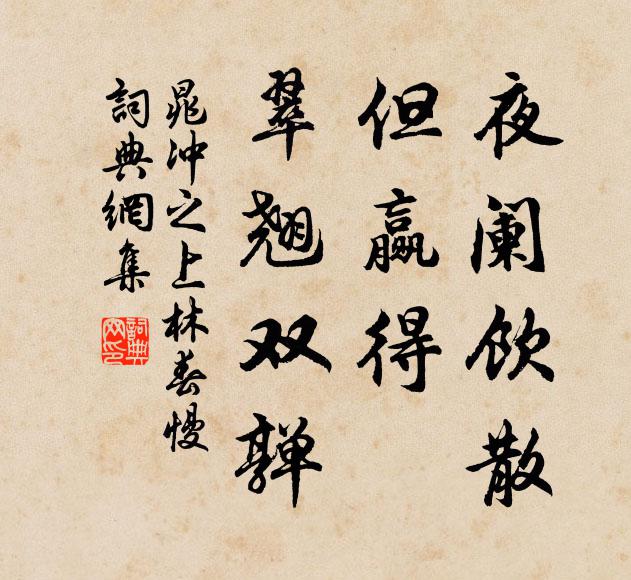 夜阑饮散
但赢得
翠翘双亸
晁冲之上林春慢
詞典網集
詞典
网印